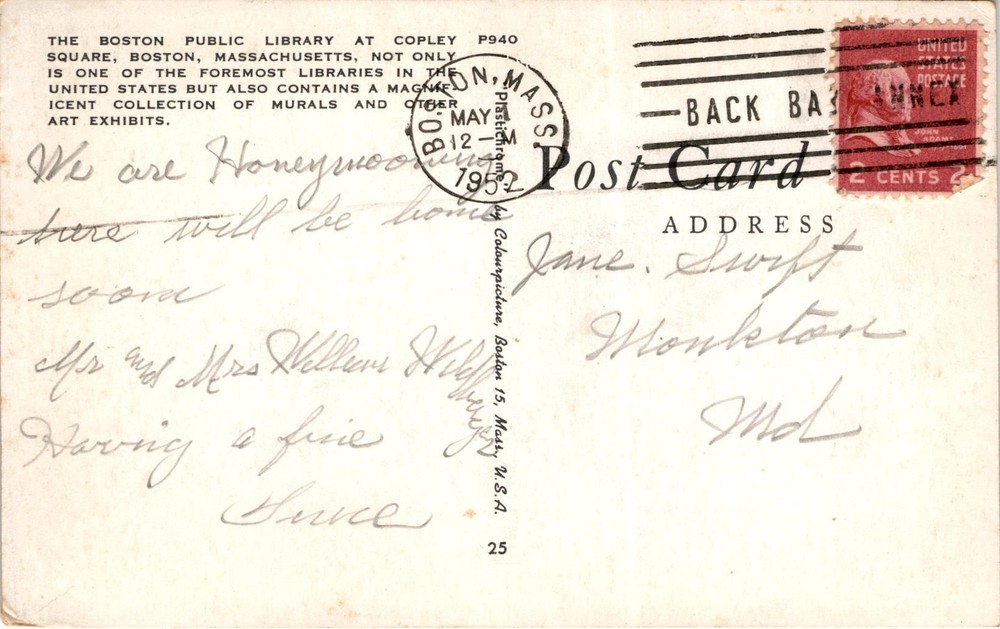 THE BOSTON PUBLIC LIBRARY AT COPLEY P940
SQUARE, BOSTON, MASSACHUSETTS, NOT ONLY
IS ONE OF THE FOREMOST LIBRARIES IN THE
UNITED STATES BUT ALSO CONTAINS A MAGNIF-
ICENT COLLECTION OF MURALS AND OTHER
ART EXHIBITS.
We are Honeymooning
here will be home
soon
Mr and Mrs William
Having a fine
BOSTON, MASS.
MAY
12 - M
195
BACK BAY ANNEX
UNITED
STATES
POSTAGE
JOHN
ADAMS
2 CENTS 2
Plastichrome by Colourpicture, Boston 15, Mass., U.S.A.
25
Post Card
ADDRESS
Jane. Swift
Monkton
Md